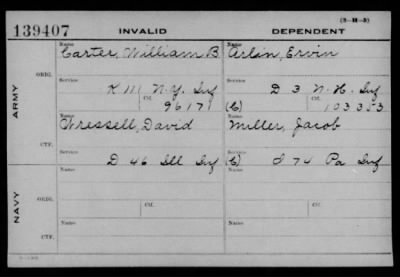 (3-H-5)
139407 INVALID DEPENDENT
Name Name
Carter, William B. Arlin, Ervin
ORIG.
Service Service
K 111 N.Y. Inf D 3 N.H. Inf
Ctf. Ctf.
96171 (C) 103353
ARMY
Name Name
Wressell, David Miller, Jacob
CTF.
Service Service
D 46 Ill Inf (C) I 74 Pa Inf
Name Name
ORIG.
Ctf. Ctf.
NAVY
Name Name
CTF.